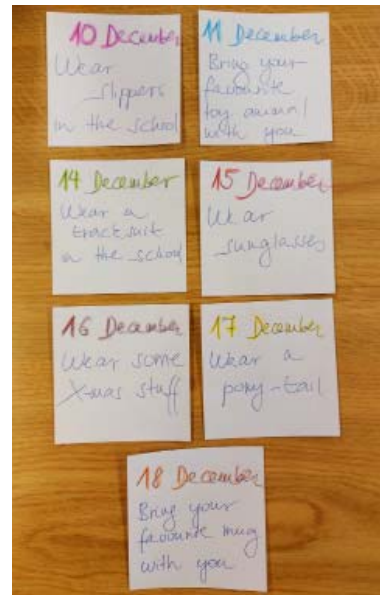 10 December
Wear
slippers
in the school
11 December
Bring your
favourite
toy animal
with you
14 December
Wear a
tracksuit
in the school
15 December
Wear
sunglasses
16 December
Wear some
X-mas stuff
17 December
Wear a
pony-tail
18 December
Bring your
favourite mug
with you